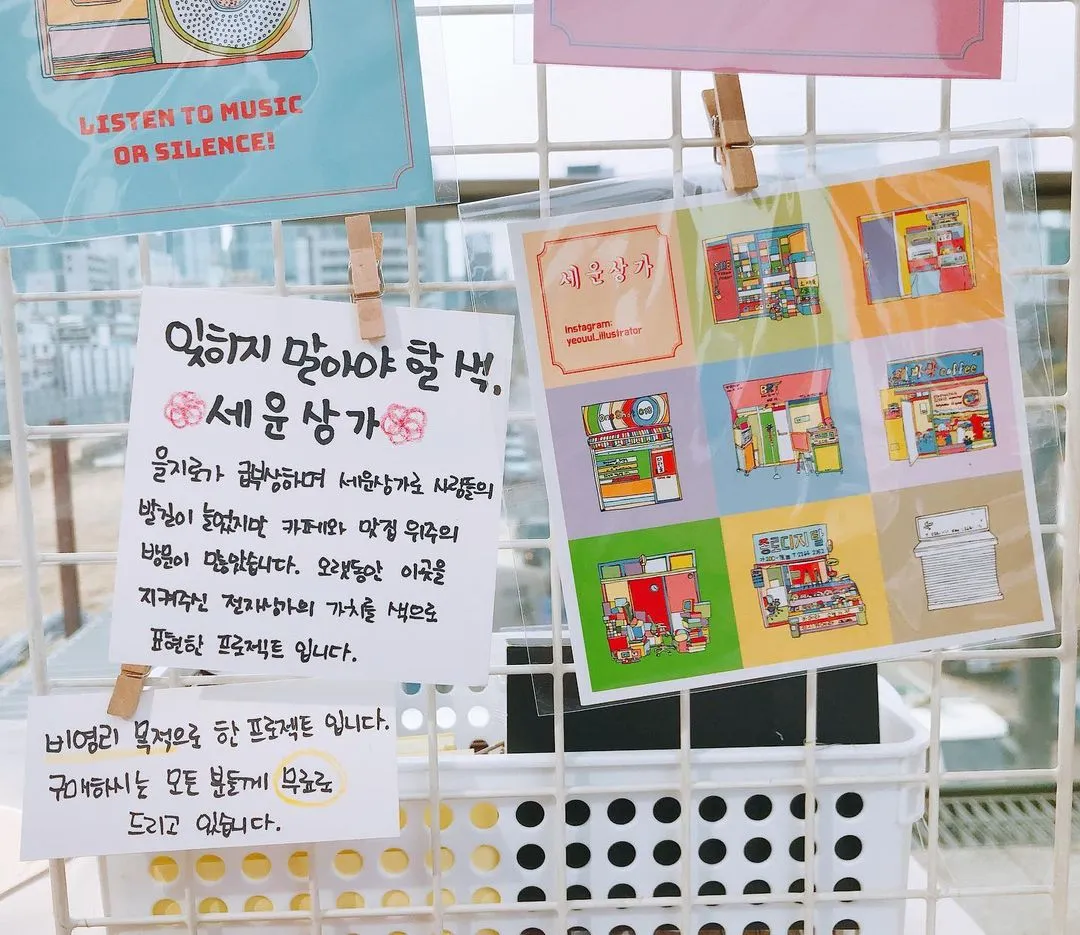 LISTEN TO MUSIC
OR SILENCE!
잊히지 말아야 할 색.
세운상가
을지로가 급부상하며 세운상가로 사람들의
발길이 늘었지만 카페와 맛집 위주의
방문이 많았습니다. 오랫동안 이곳을
지켜주신 전자상가의 가치를 색으로
표현한 프로젝트 입니다.
비영리 목적으로 한 프로젝트 입니다.
구매하시는 모든 분들께 무료로
드리고 있습니다.
세운상가
Instagram:
yeouul_illustrator
Coffee
종로디지탈